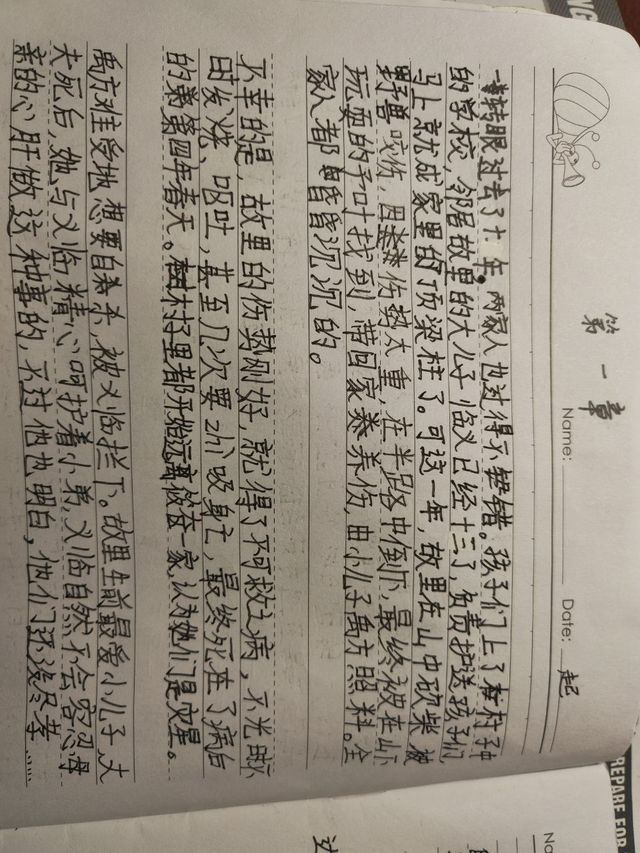 第一章
Name:
Date:
起
一转眼过去了十年,两家人也过得不错。孩子们上了村中
的学校,邻居故里的大儿子临义已经十三了,负责护送孩子们
马上就成家里的顶梁柱了。可这一年,故里在山中砍柴被
野兽咬伤,因伤势太重,在半路中倒下,最终被在山下
玩耍的子叶找到,带回家养伤,由小儿子禹方照料。全
家人都昏昏沉沉的。
不幸的是,故里的伤势刚好,就得了不可救之病,不光
由发烧、呕吐,甚至几次要zhì吸身亡,最终死在了病后
的第四年春天。村里都开始远离 在一家,认为她们是灾星。
禹方难受地想要自杀,被义临拦下。故里生前最爱小儿子,丈
夫死后,她与义临精心呵护着小弟,义临自然不会容忍母
亲的心肝做这种事的,不过他也明白,他们还没尽孝……
REPARE FOR
过